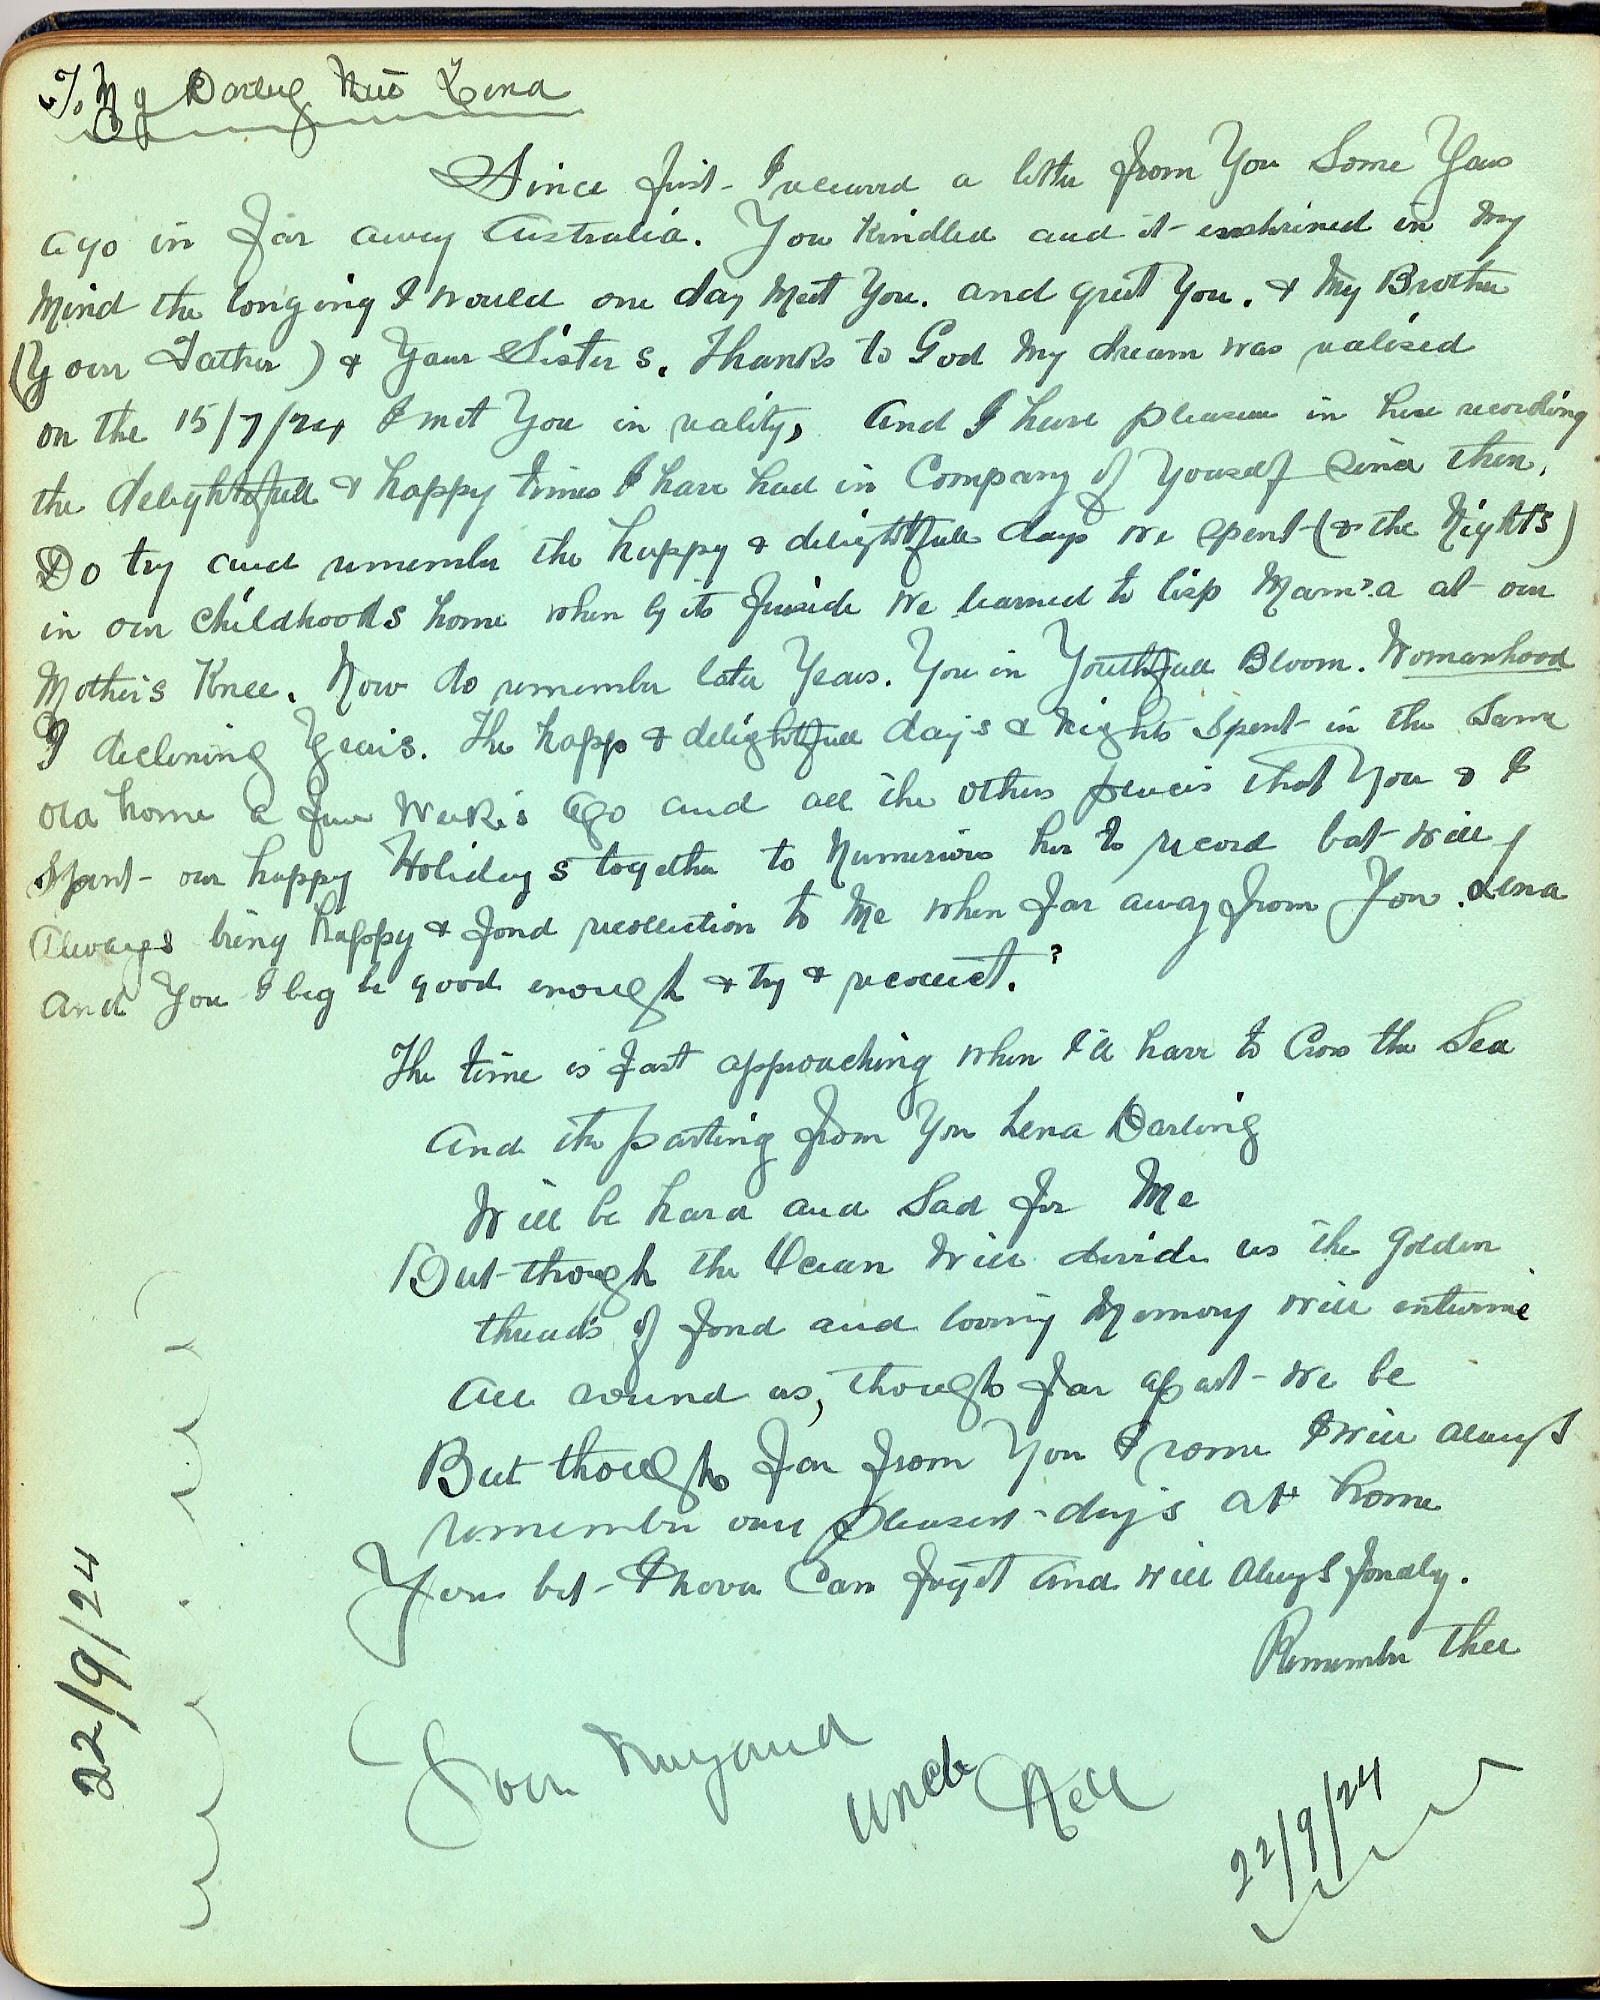 To My Darling Lena
Since first I received a letter from You Some Years
ago in far away Australia. You Kindled and it enshrined in My
Mind the longing I would one day Meet You. and greet You. & My Brother
(Your Father) & Your Sisters. Thanks to God My dream was realised
on the 15/7/24 I met You in reality, And I have pleasure in here recording
the delightfull & happy times I have had in Company of Yourself Since then.
Do try and remember the happy & delightfull days we spent (& the Nights)
in our childhoods home when by its fireside We learned to lisp Mama at our
Mother's Knee. Now do remember later Years. You in Youthfull Bloom. Womanhood
I declining Years. The happy & delightfull days & Nights Spent in the Same
old home a few Weeks ago and all the others places that You & I
Spent our happy Holidays together to Numerious her to record but will
Always bring happy & fond recollection to Me when far away from You. Lena
And You I beg be good enough & try & recollect.?
The time is fast approaching when I'll have to Cross the Sea
And the parting from You Lena Darling
Will be hard and Sad for Me
But though the Ocean Will divide us the Golden
threads of fond and loving Memory will entwine
All around us, though far apart We be
But though far from You I rome I will always
remember our pleasent days at home
Yous bet I never Can forget And will always fondly.
Remember thee
Your
Uncle
22/9/24
22/9/24